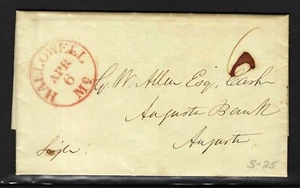 HALLOWELL Me
APR
6
6
G. W. Allen Esq. Cashr
Augusta Bank
Augusta
Single
5-25